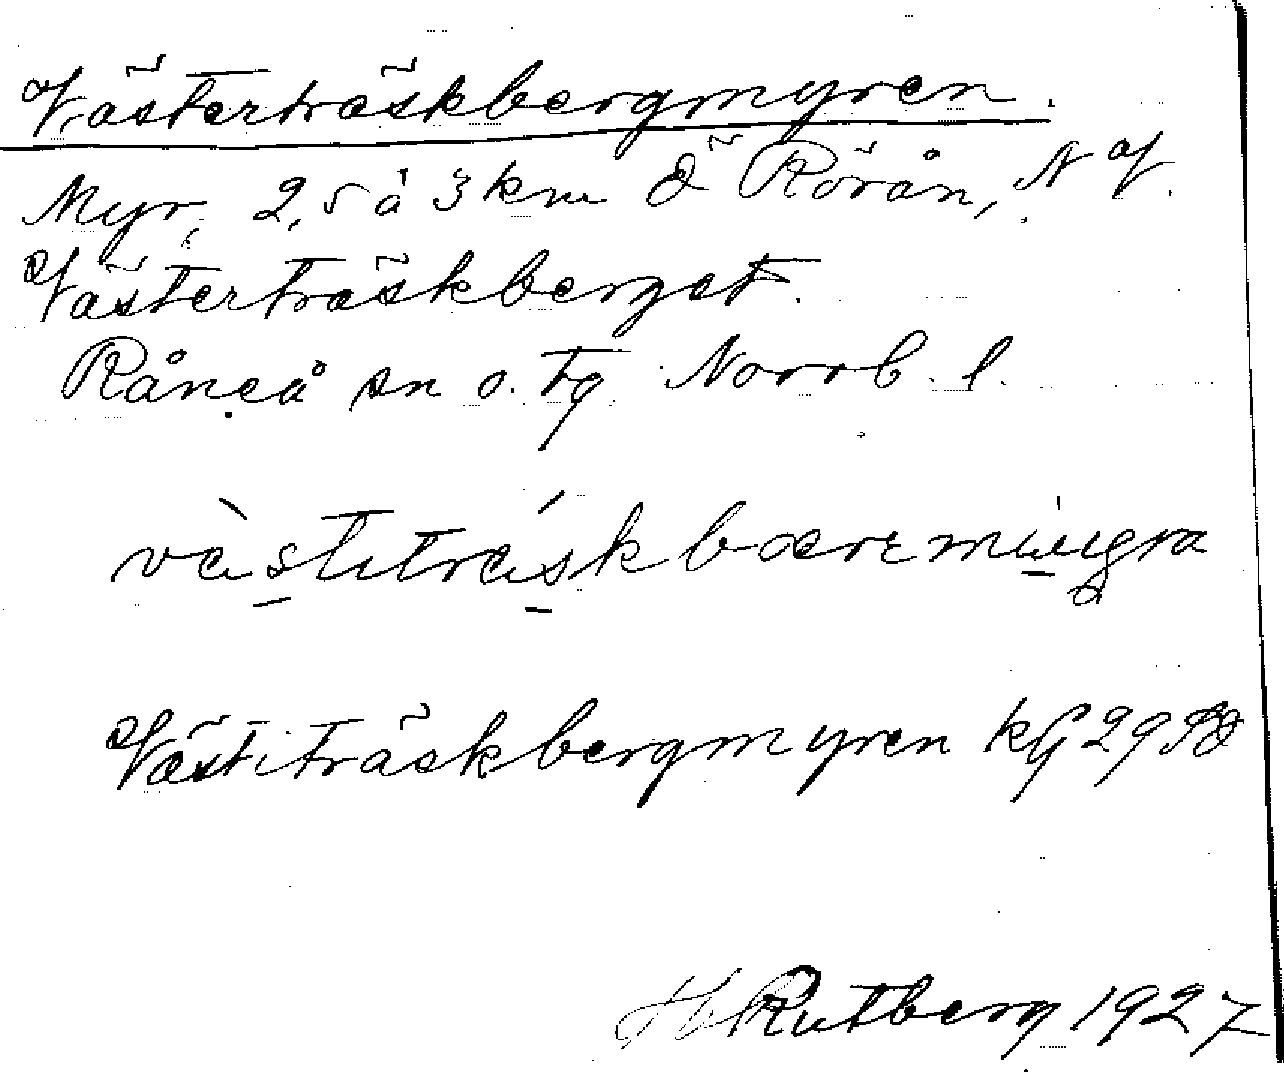 Västerträskbergmyren.
Myr, 2,5 à 3 km Ö Rörån, N V.
Västerträskberget.
Råneå sn o. tg Norrb. l.
västiträskbærmŭyra
Västiträskbergmyren kG 29
H Rutberg 1927